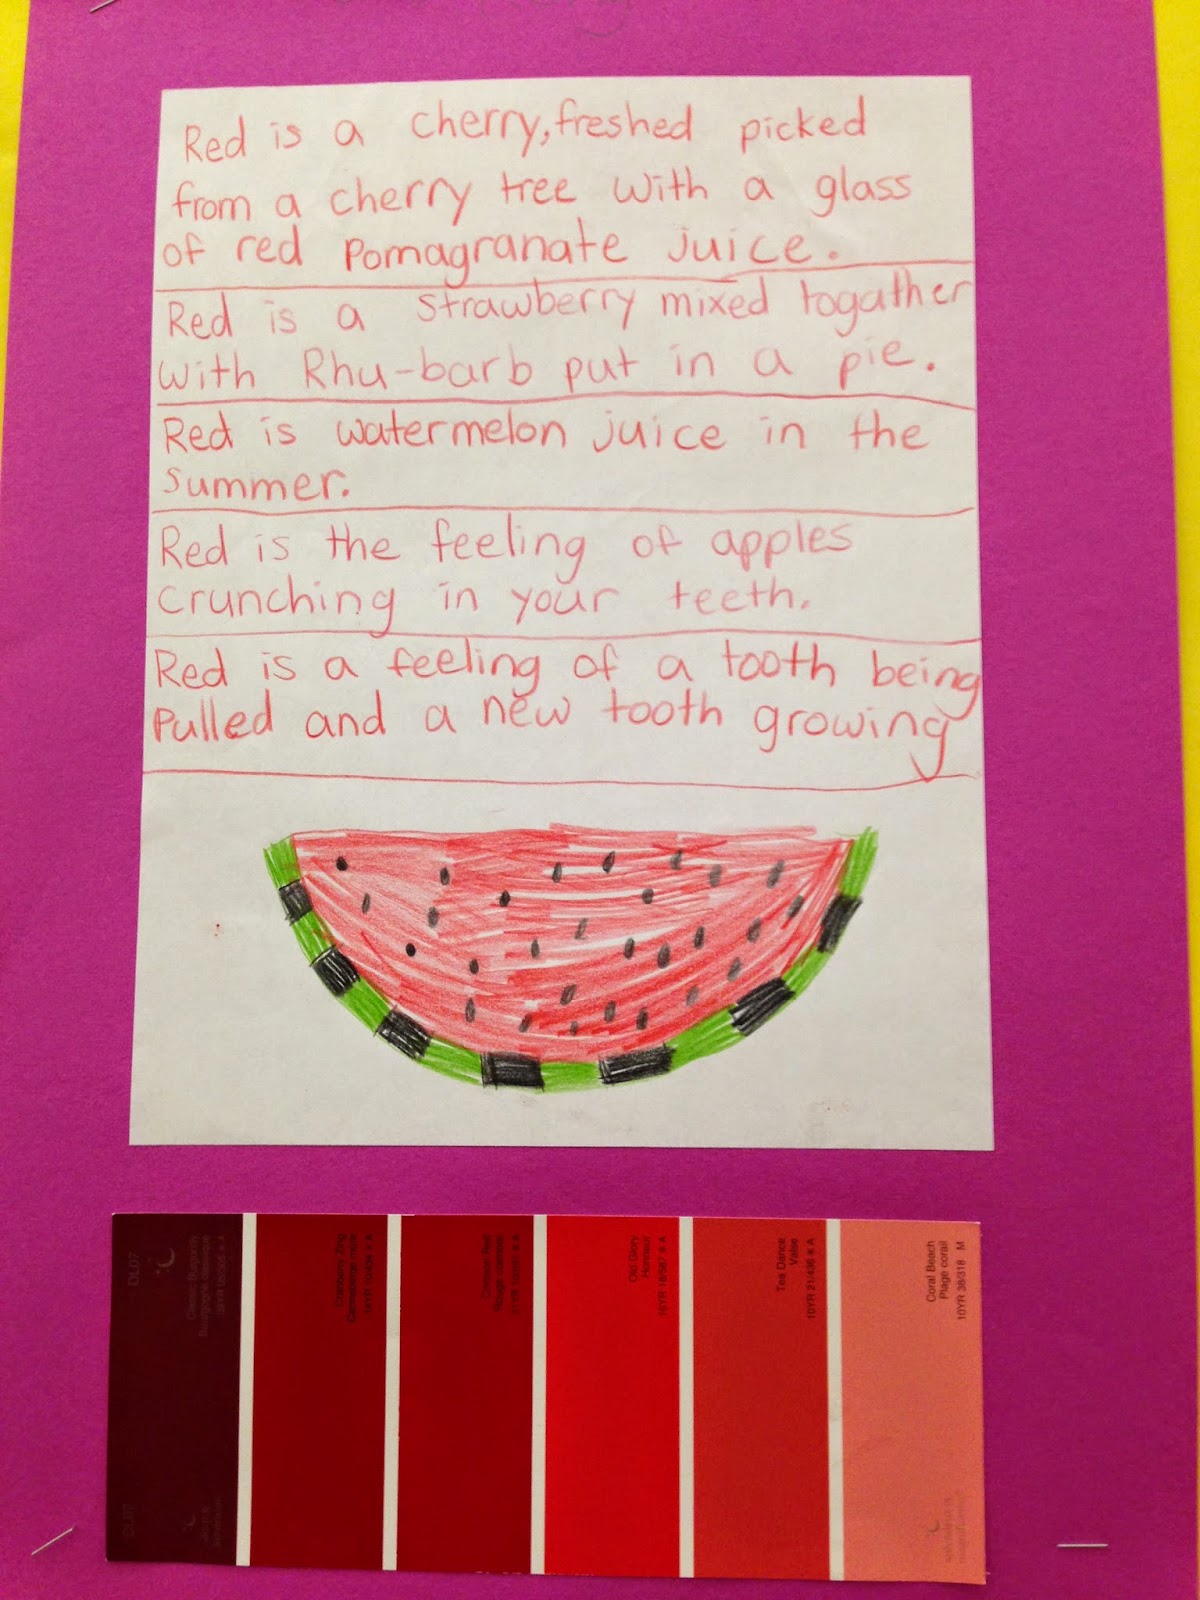 Red is a cherry, freshed picked
from a cherry tree with a glass
of red pomagranate juice.
Red is a strawberry mixed togather
with Rhu-barb put in a pie.
Red is watermelon juice in the
summer.
Red is the feeling of apples
crunching in your teeth.
Red is a feeling of a tooth being
Pulled and a new tooth growing
DL07
Classic Burgundy
Bourgogne classique
Cranberry Zing
Crimson Red
Old Glory
Honneur
16YR 16/587 * A
Tea Dance
Valse
10YR 21/436 * A
Coral Beach
Plage corail
10YR 38/318 M
DL07